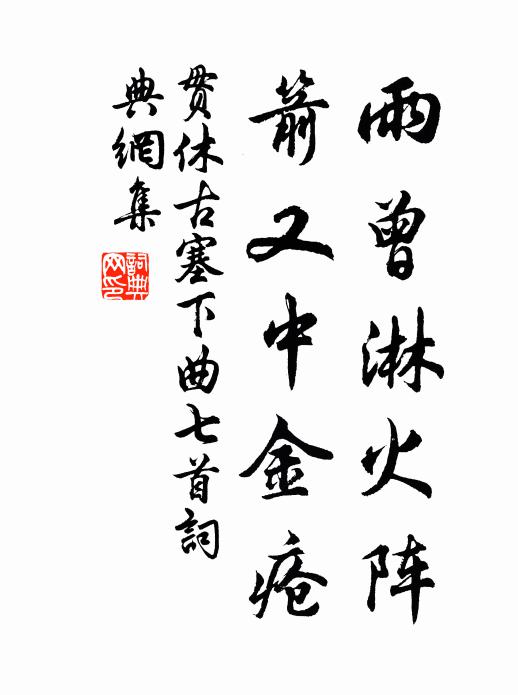 雨曾淋火阵
箭又中金疮
贯休古塞下曲七首詞
典網集
詞典网印